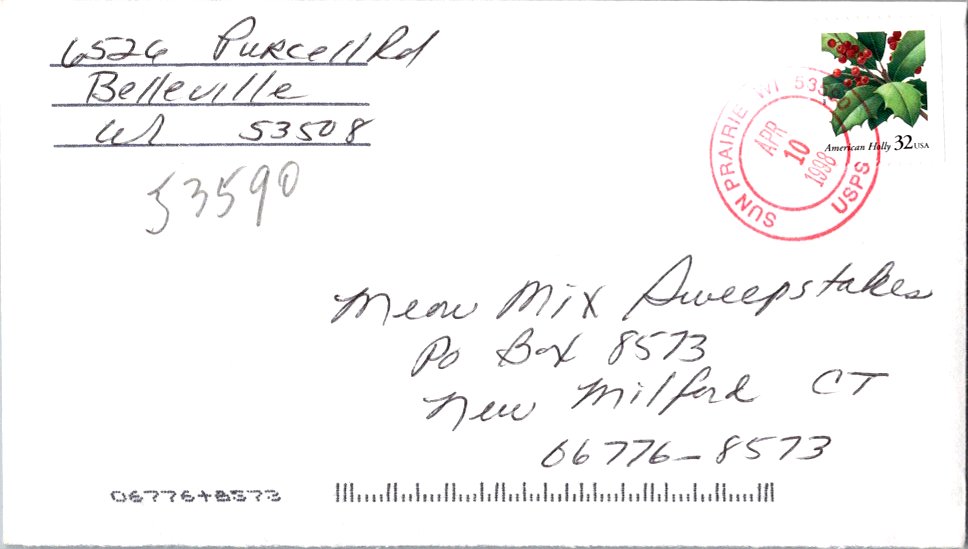 6526 Purcell Rd
Belleville
WI 53508
53590
American Holly 32 USA
SUN PRAIRIE WI 53590
APR
10
1998
USPS
Meow Mix Sweepstakes
Po Box 8573
New Milford CT
06776-8573
06776+8573